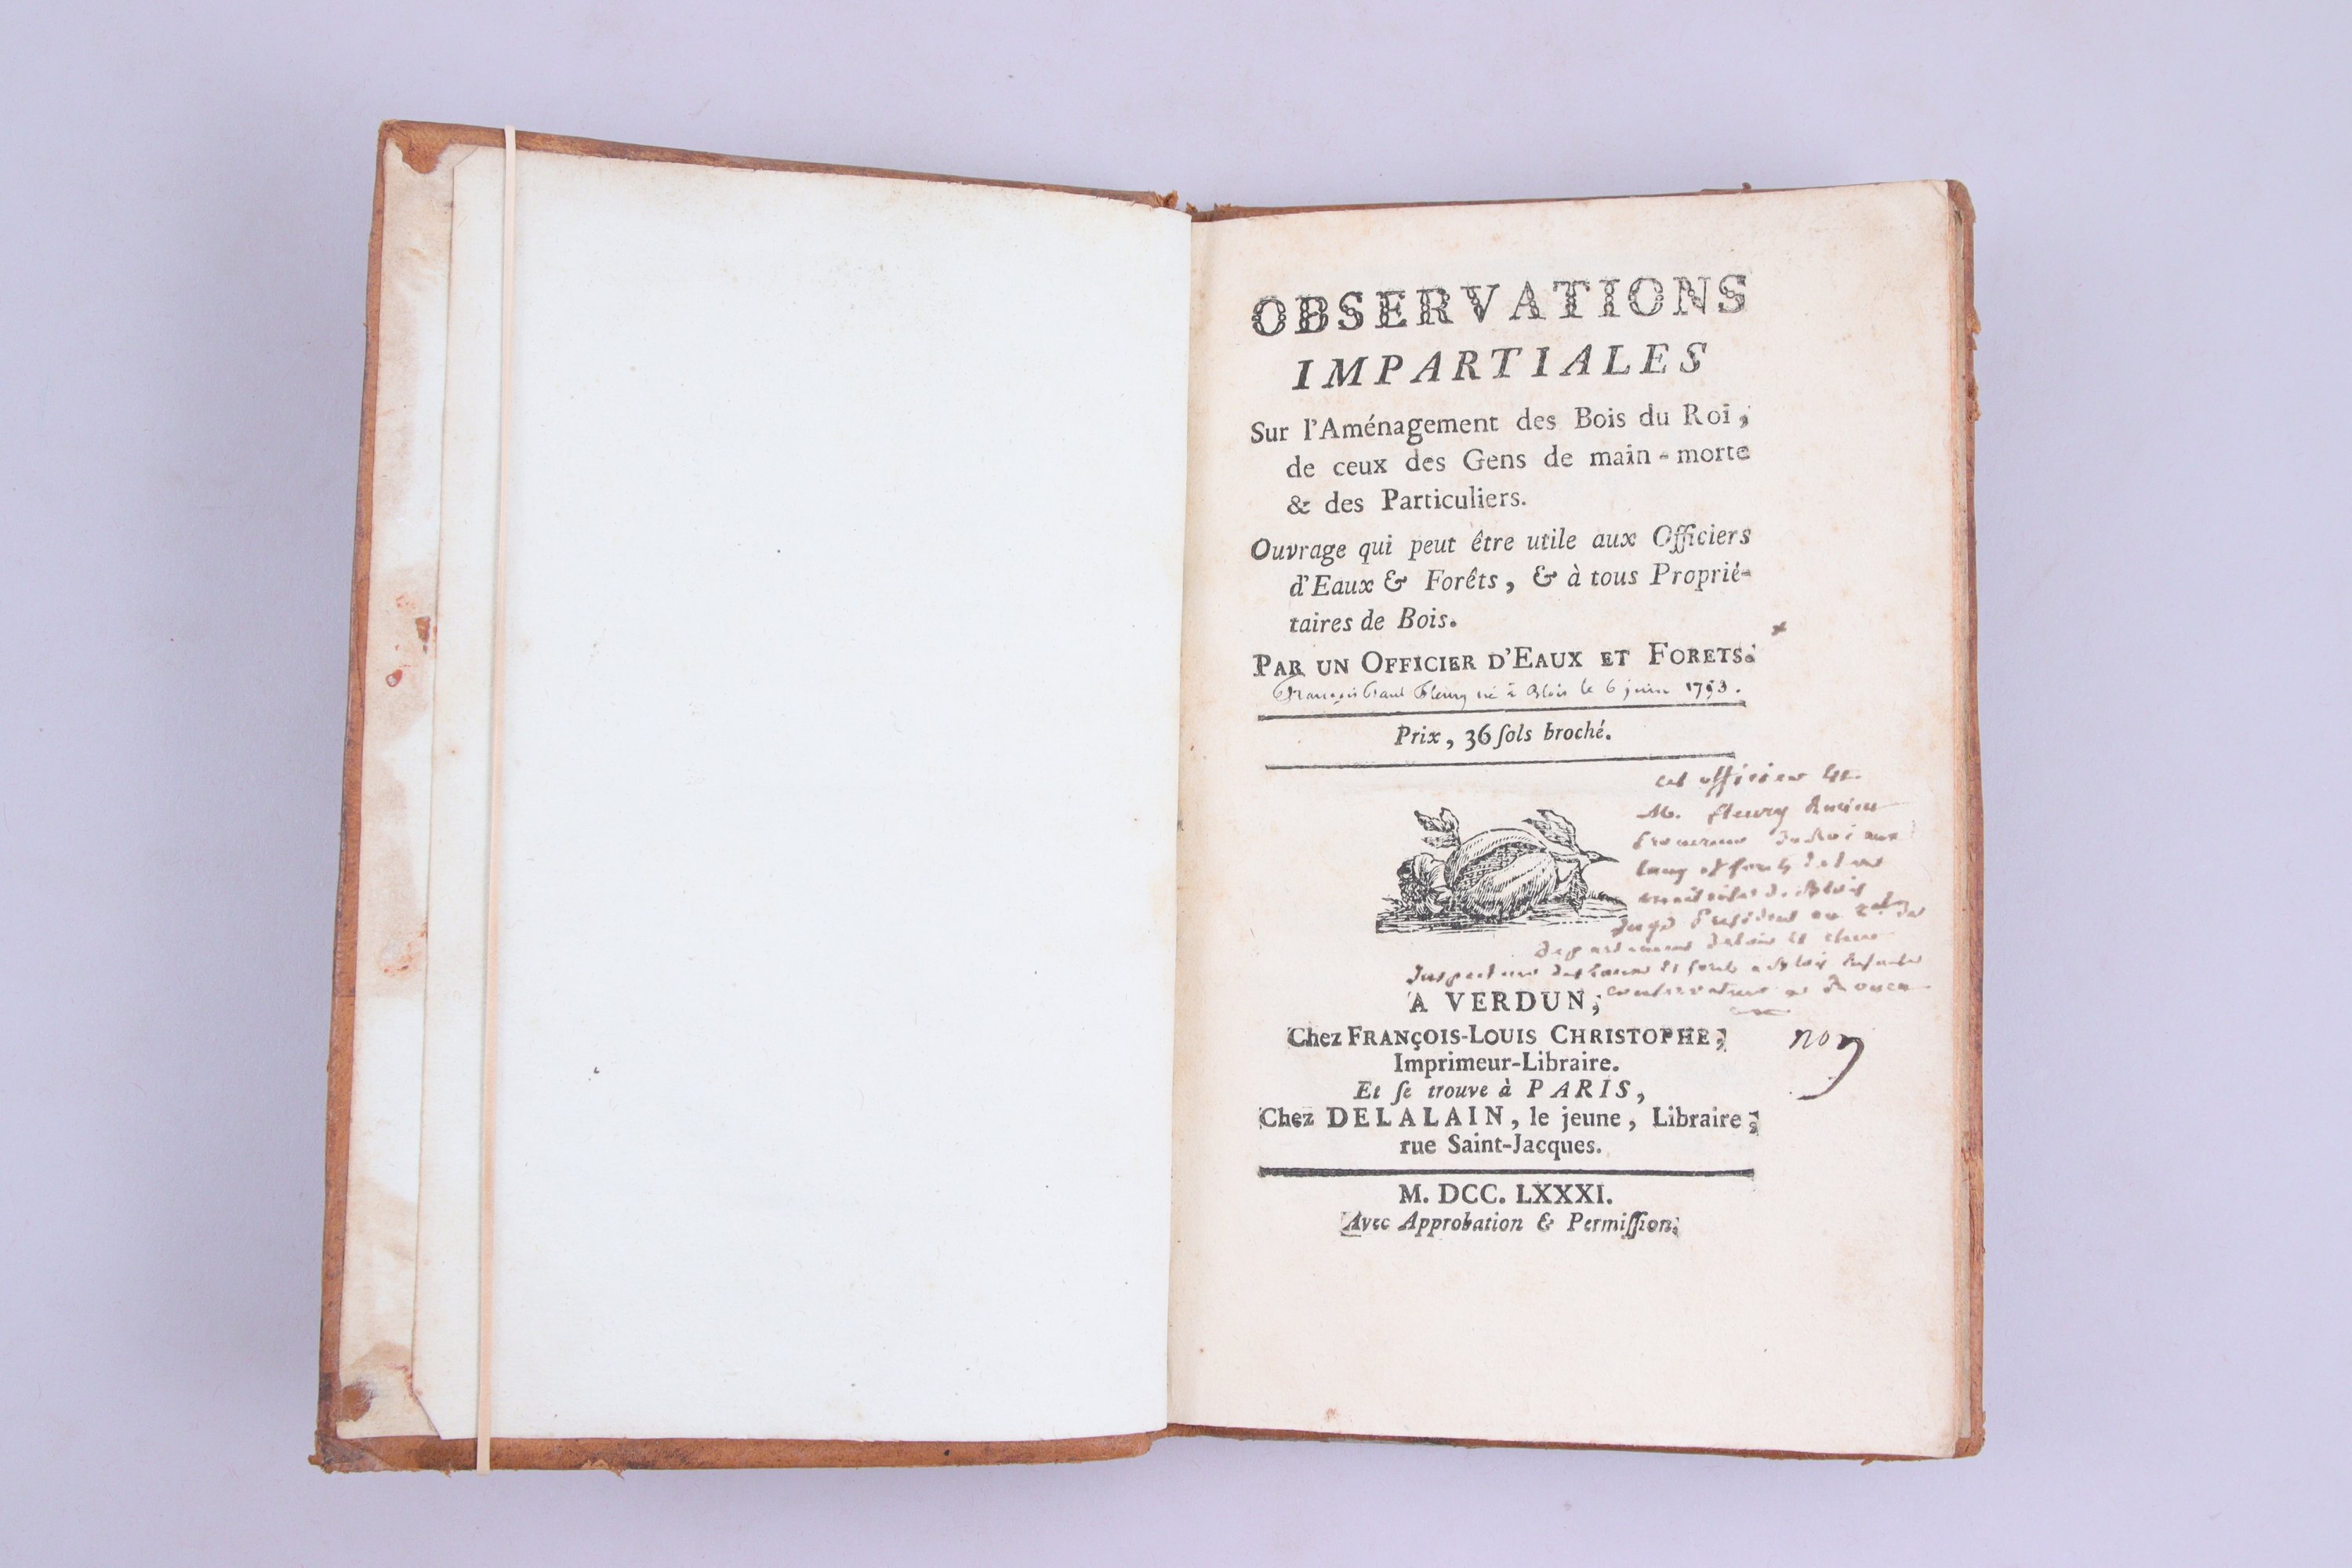 OBSERVATIONS
IMPARTIALES
Sur l'Aménagement des Bois du Roi,
de ceux des Gens de main-morte
& des Particuliers.
Ouvrage qui peut être utile aux Officiers
d'Eaux & Forêts, & à tous Proprié-
taires de Bois.
PAR UN OFFICIER D'EAUX ET FORETS.
François Paul Fleury né à Blois le 6 juin
Prix, 36 ſols broché.
cet officier est
M. fleury ancien
procureur du Roi aux
eaux et forets
de Blois
juge président au
departement
inspecteur des eaux et forets a Blois ensuite
conservateur a Rouen
A VERDUN,
Chez FRANÇOIS-LOUIS CHRISTOPHE,
Imprimeur-Libraire.
non
Et ſe trouve à PARIS,
Chez DELALAIN, le jeune, Libraire,
rue Saint-Jacques.
M. DCC. LXXXI.
Avec Approbation & Permiſſion.